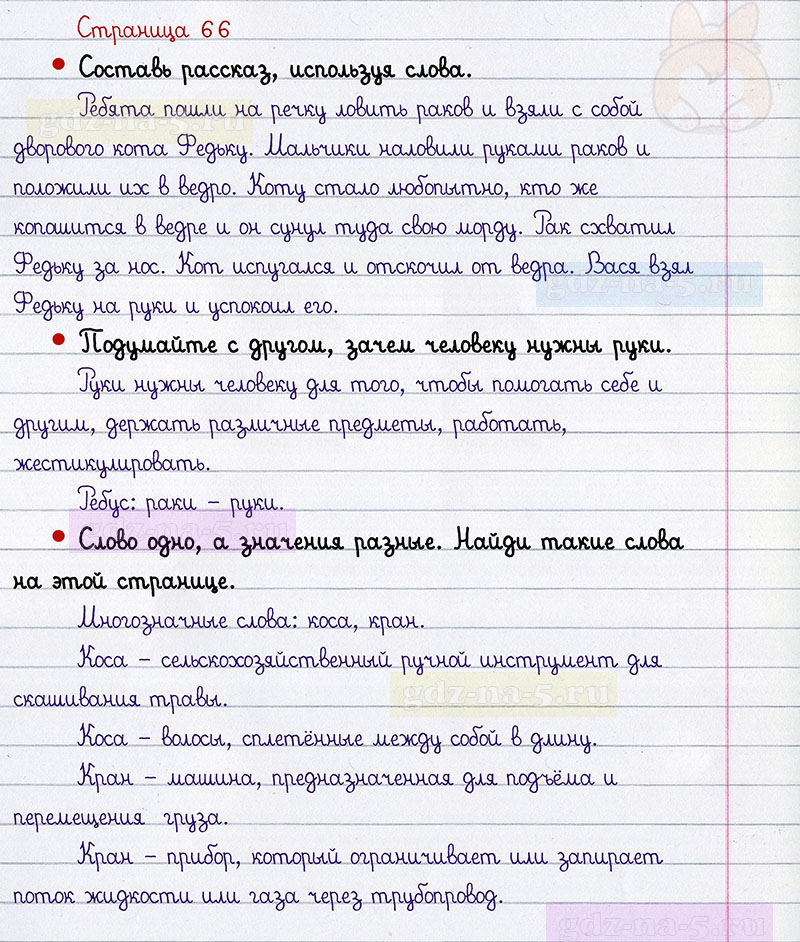 Страница 66
• Составь рассказ, используя слова.
Ребята пошли на речку ловить раков и взяли с собой
дворового кота Федьку. Мальчики наловили руками раков и
положили их в ведро. Коту стало любопытно, кто же
копашится в ведре и он сунул туда свою морду. Рак схватил
Федьку за нос. Кот испугался и отскочил от ведра. Вася взял
Федьку на руки и успокоил его.
• Подумайте с другом, зачем человеку нужны руки.
Руки нужны человеку для того, чтобы помогать себе и
другим, держать различные предметы, работать,
жестикулировать.
Ребус: раки – руки.
• Слово одно, а значения разные. Найди такие слова
на этой странице.
Многозначные слова: коса, кран.
Коса – сельскохозяйственный ручной инструмент для
скашивания травы.
Коса – волосы, сплетённые между собой в длину.
Кран – машина, предназначенная для подъёма и
перемещения груза.
Кран – прибор, который ограничивает или запирает
поток жидкости или газа через трубопровод.
gdz-na-5.ru
gdz-na-5.ru
gdz-na-5.ru
gdz-na-5.ru
gdz-na-5.ru